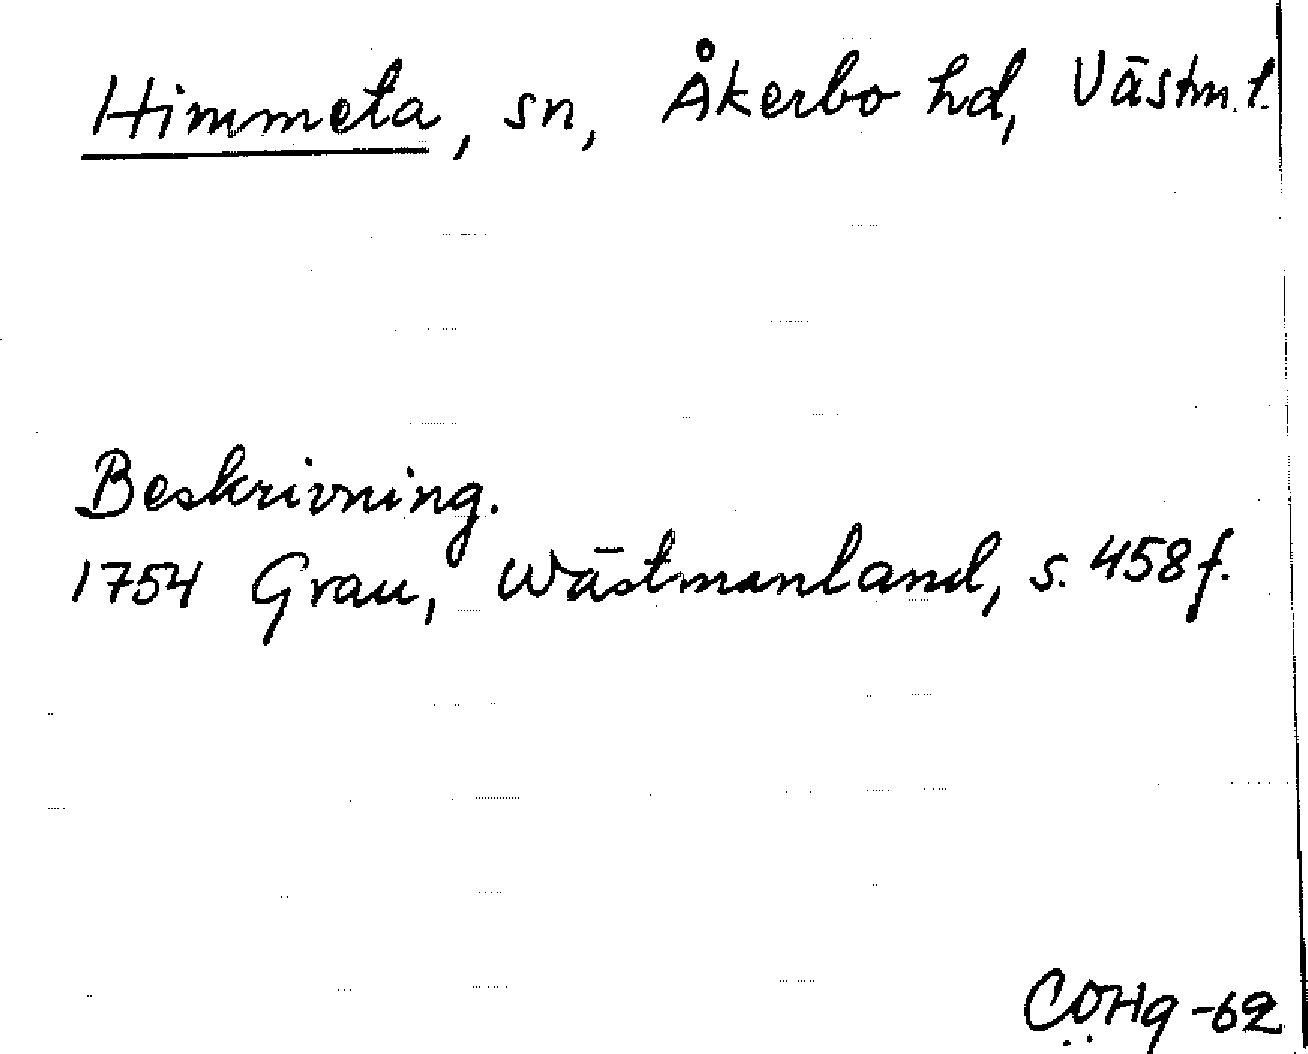 Himmeta, sn, Åkerbo hd, Västm. l.
Beskrivning.
1754 Grau, Wästmanland, s. 458 f.